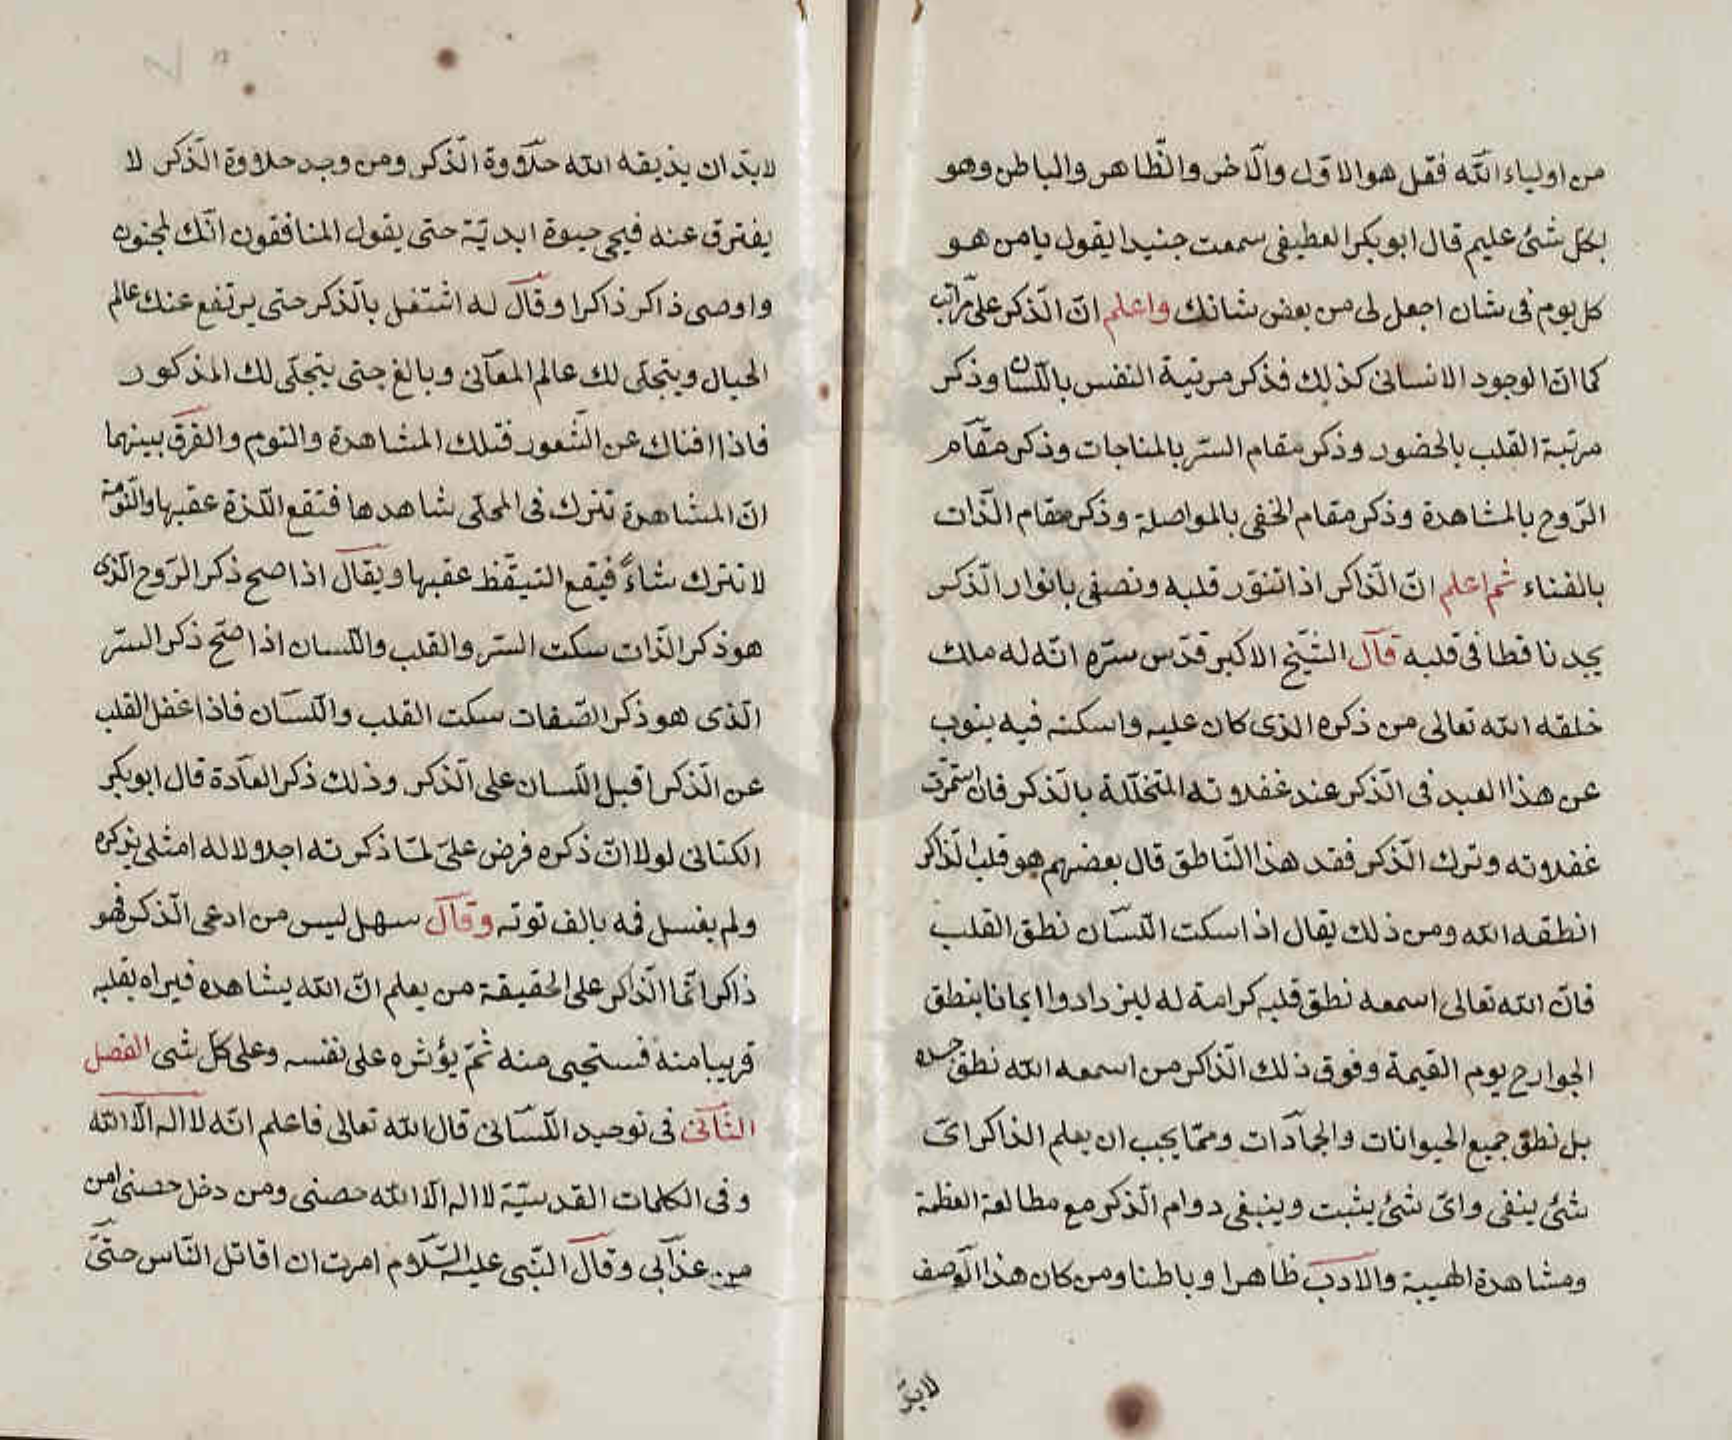 من اولياء اللّه فقل هو الاوّل والآخر والظّاهر والباطن وهو
بكلّ شئ عليم قال ابو بكر العطيفى سمعت جنيدا يقول يا من هو
كل يوم فى شان اجعل لى من بعض شانك واعلم انّ الذّكر على مراتب
كما انّ الوجود الانسانى كذلك فذكر مرتبة النفس باللّسان وذكر
مرتبة القلب بالحضور وذكر مقام السّر بالمناجات وذكر مقام
الرّوح بالمشاهدة وذكر مقام الخفى بالمواصلة وذكر مقام الذّات
بالفناء ثم اعلم انّ الذّاكر اذا تنوّر قلبه وتصفى بانوار الذّكر
يجد ناقطا فى قلبه قال الشّيخ الاكبر قدّس سرّه انّه له ملك
خلقه اللّه تعالى من ذكره الذى كان عليه واسكنه فيه ينوب
عن هذا العبد فى الذّكر عند غفلاته المتخلّلة بالذّكر فان استمرّت
غفلاته وترك الذّكر فقد هذا النّاطق قال بعضهم هو قلب الذّاكر
انطقه اللّه ومن ذلك يقال اذا سكت اللّسان نطق القلب
فانّ اللّه تعالى اسمعه نطق قلبه كرامة له ليزدادوا ايمانا بنطق
الجوارح يوم القيمة وفوق ذلك الذّاكر من اسمعه اللّه نطق جسده
بل نطق جميع الحيوانات والجمادات وممّا يجب ان يعلم الذاكر اىّ
شئ ينفى واىّ شئ يثبت وينبغى دوام الذّكر مع مطالعة العظمة
ومشاهدة الهيبة والادب ظاهرا وباطنا ومن كان هذا الوصف
لابدّ
لابدّ ان يذيقه اللّه حلاوة الذّكر ومن وجد حلاوة الذّكر لا
يفترق عنه فيحى حيوة ابديّة حتى يقول المنافقون انّك لمجنون
واوصى ذاكر ذاكرا وقال له اشتغل بالذّكر حتى يرتفع عنك عالم
الخيال ويتجلّى لك عالم المعانى وبالغ حتى يتجلّى لك المذكور
فاذا افناك عن الشّعور فتلك المشاهدة والنوم والفرق بينهما
انّ المشاهدة تترك فى المحلّى شاهدها فتقع اللّذة عقبها والنّومة
لا تترك شاءً فيقع التيقّظ عقبها ويقال اذا صح ذكر الرّوح الّذى
هو ذكر الذّات سكت السّر والقلب واللّسان اذا صحّ ذكر السّر
الّذى هو ذكر الصّفات سكت القلب واللّسان فاذا غفل القلب
عن الذّكر اقبل اللّسان على الذّكر وذلك ذكر العادة قال ابو بكر
الكتانى لولا انّ ذكره فرض علىّ لمّا ذكرته اجلالا له امثلى يذكره
ولم يغسل فمه بالف توته وقال سهل ليس من ادعى الذّكر فهو
ذاكر انّما الذّاكر على الحقيقة من يعلم انّ اللّه يشاهده فيراه بقلبه
قريبا منه فستحيى منه ثمّ يؤثره على نفسه وعلى كلّ شى الفصل
الثّانى فى توحيد اللّسانى قال اللّه تعالى فاعلم انّه لا اله الّا اللّه
وفى الكلمات القدسيّة لا اله الّا اللّه حصنى ومن دخل حصنى امن
من عذابى وقال النّبى عليه السّلام امرت ان اقاتل النّاس حتىّ